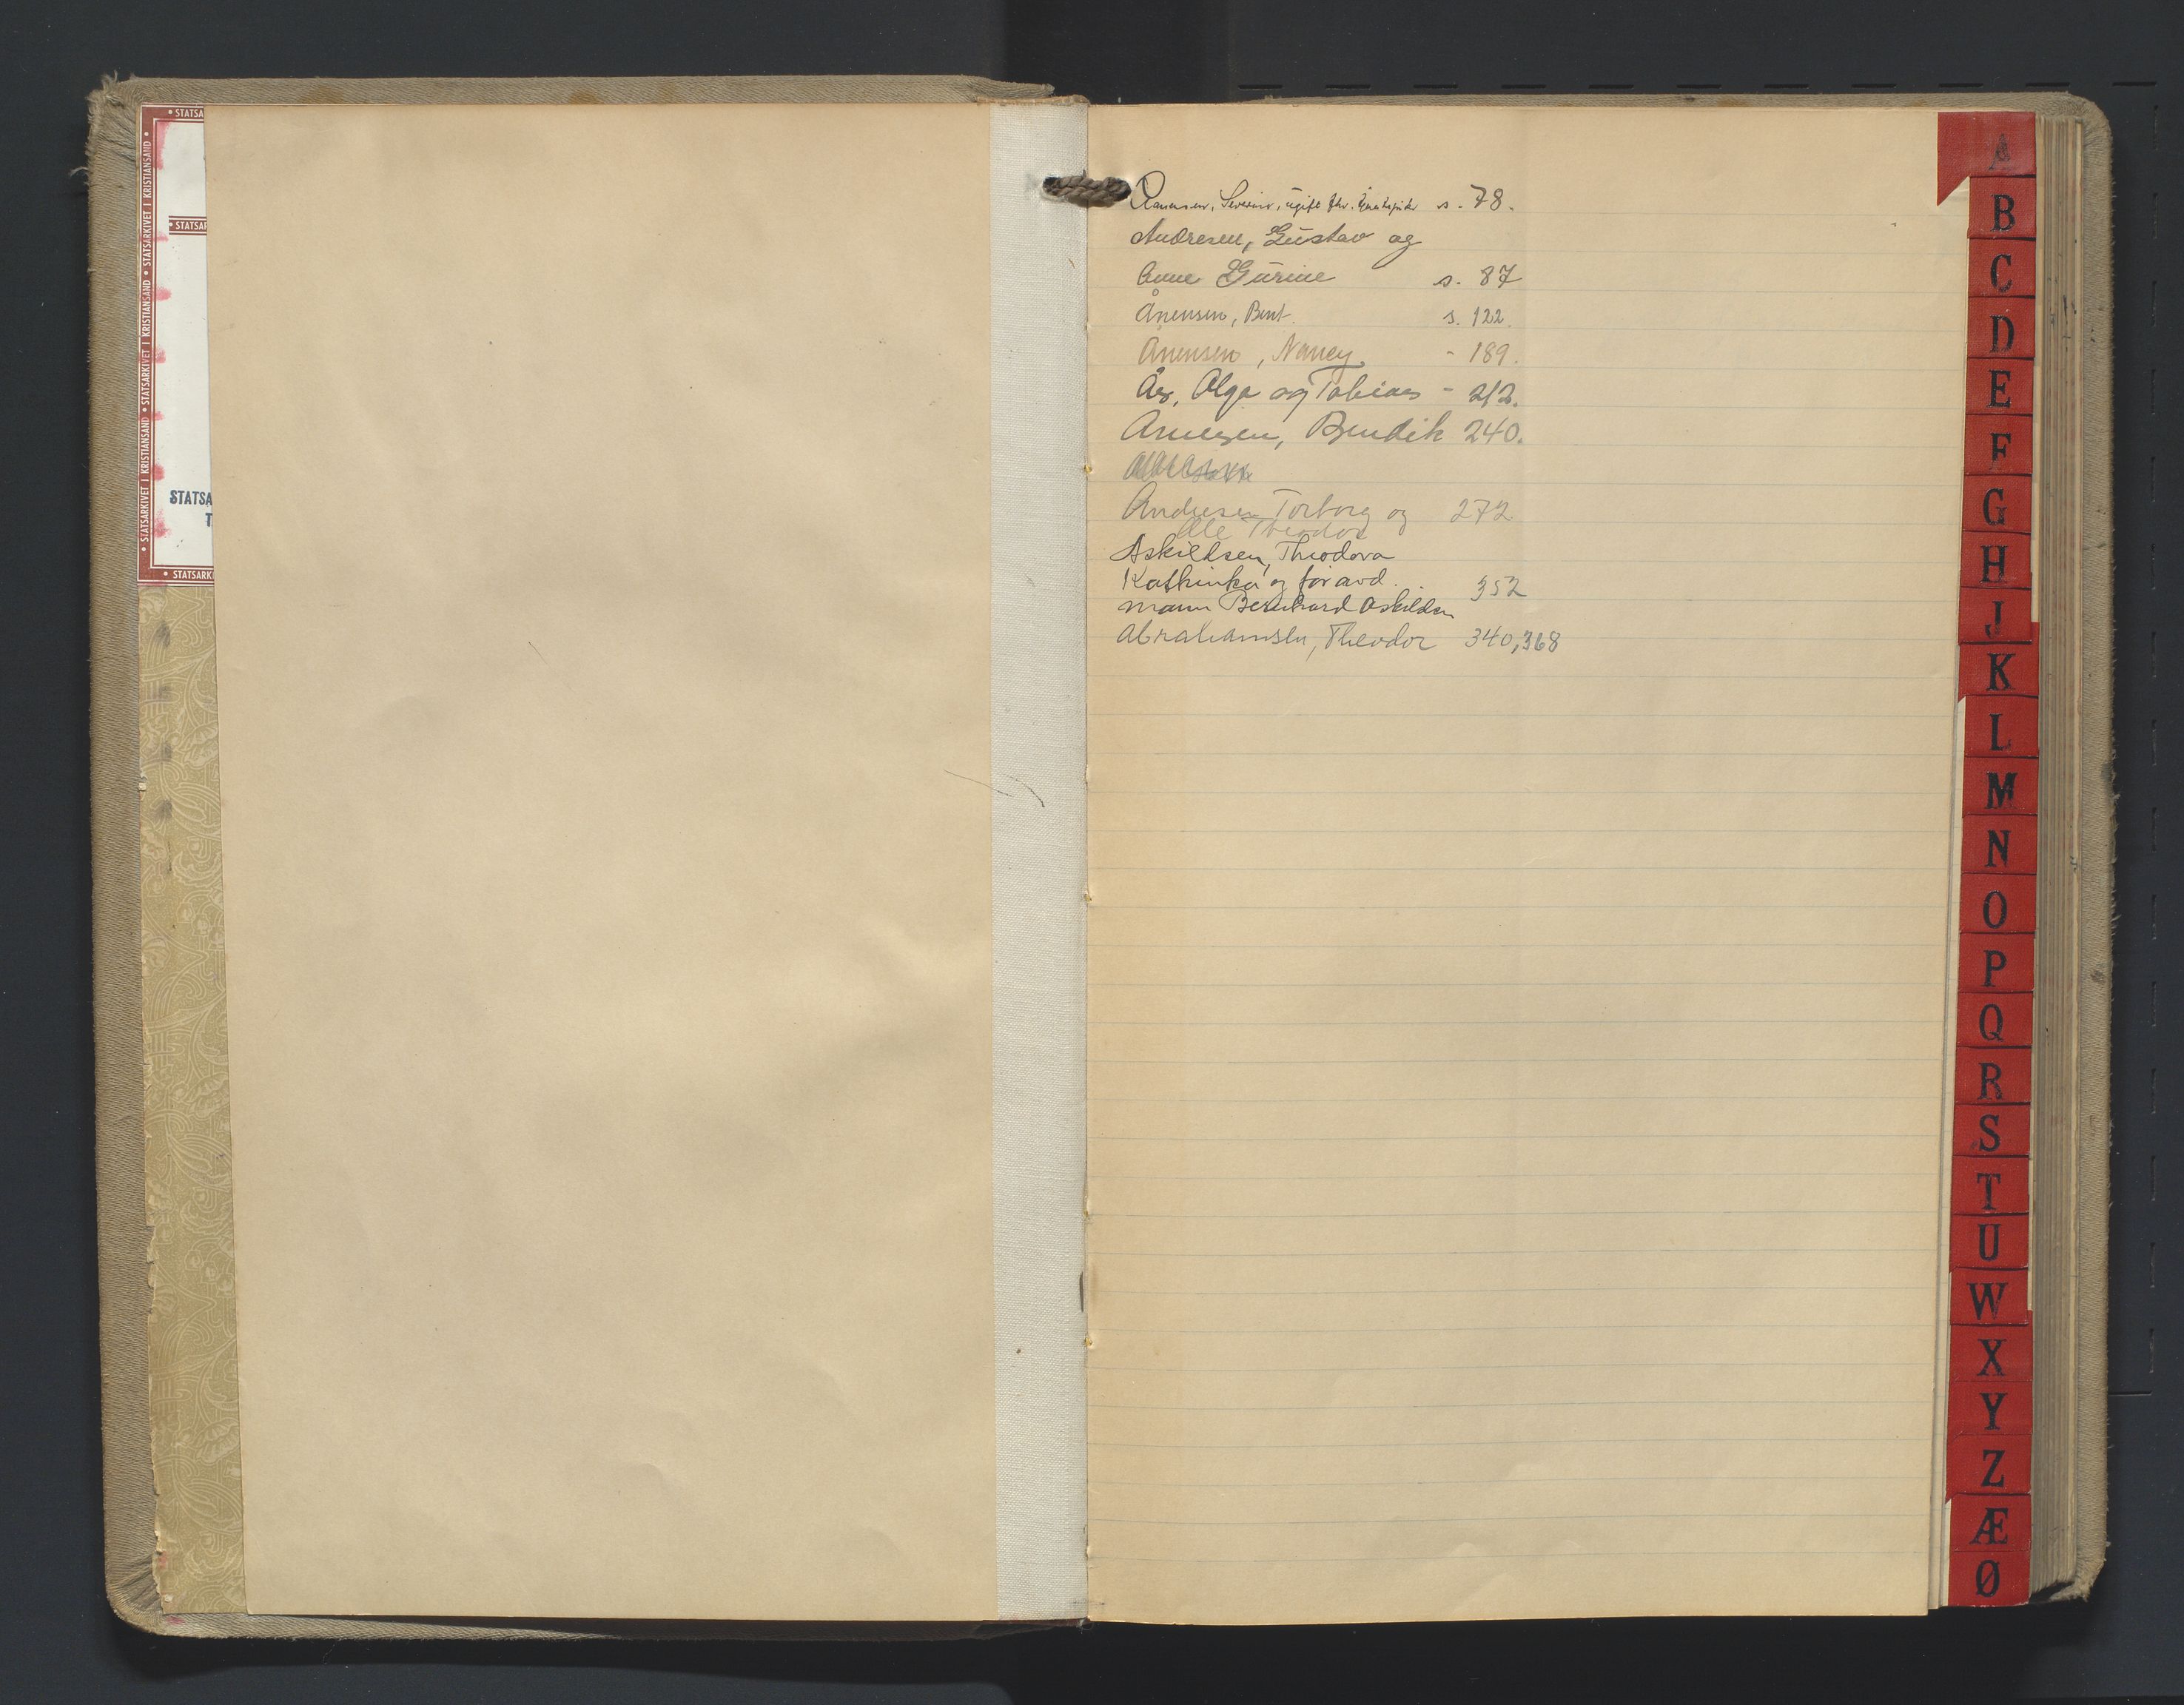 STATSARKIVET I KRISTIANSAND • STATSARKIVET I KRISTIANSAND • STATSARKIVET I KRISTIANSAND •
Severine, ugift s. 78.
Andresen, Gustav og
Anne Gurine s. 87
Ånensen, Bent. s. 122.
Ånensen, Nancy - 189.
Ås, Olga og Tobias - 212.
Arnesen, Bendik 240.
Andresen Torborg og 272
Ole Theodor
Askildsen, Theodora
Kathinka og før avd.
mann Bernhard Askildsen 352
Abrahamsen, Theodor 340,368
A
B
C
D
E
F
G
H
J
K
L
M
N
O
P
Q
R
S
T
U
W
X
Y
Z
Æ
Ø